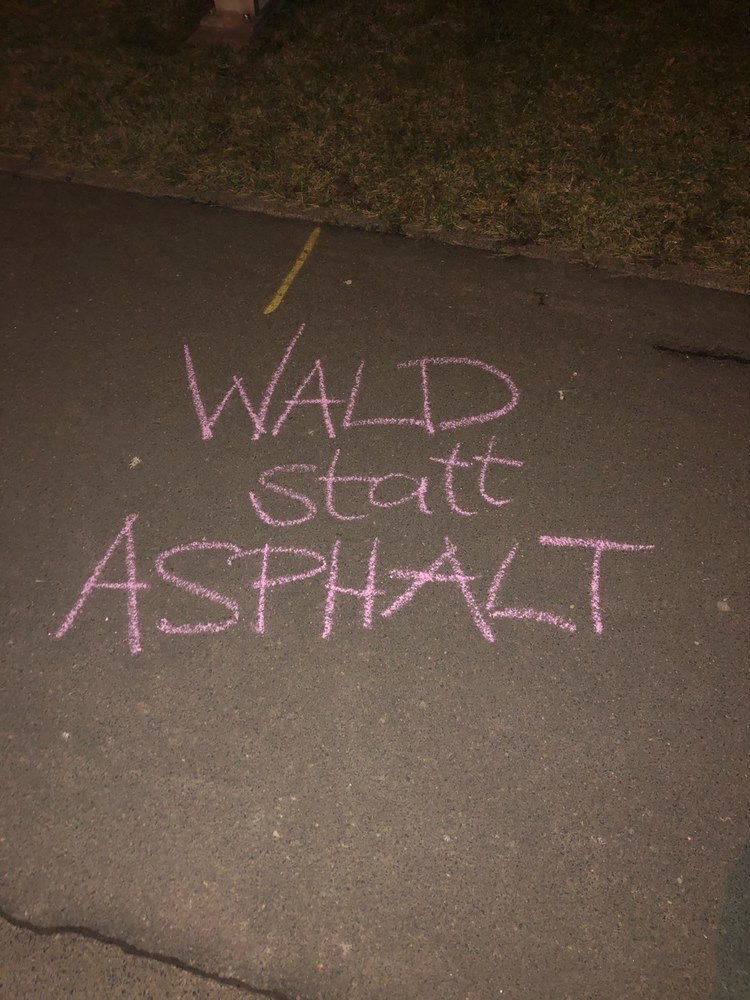 WALD
statt
ASPHALT